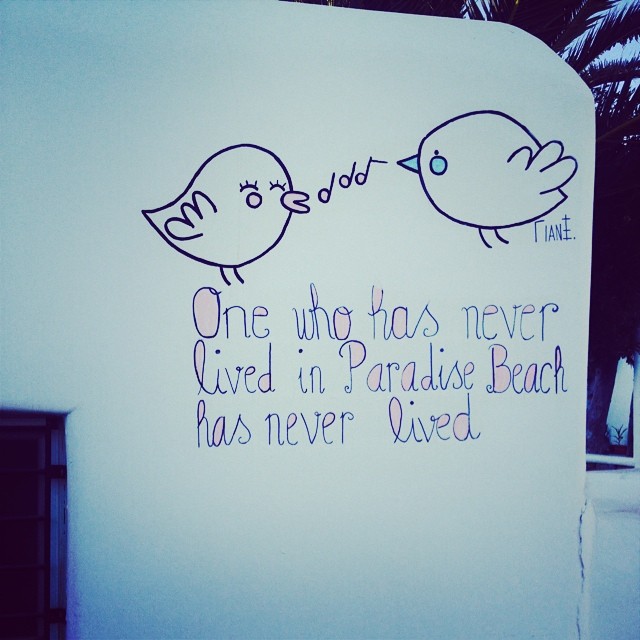 One who has never
lived in Paradise Beach
has never lived